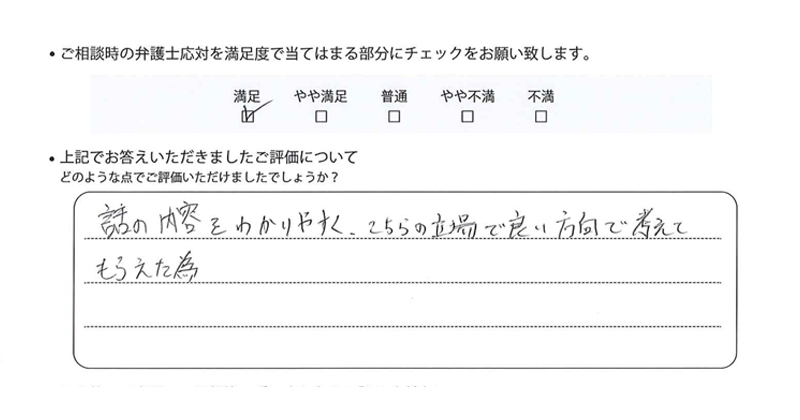 • ご相談時の弁護士応対を満足度で当てはまる部分にチェックをお願い致します。
満足 やや満足 普通 やや不満 不満
☑ □ □ □ □
• 上記でお答えいただきましたご評価について
どのような点でご評価いただけましたでしょうか？
話の内容をわかりやすく、こちらの立場で良い方向で考えて
もらえた為